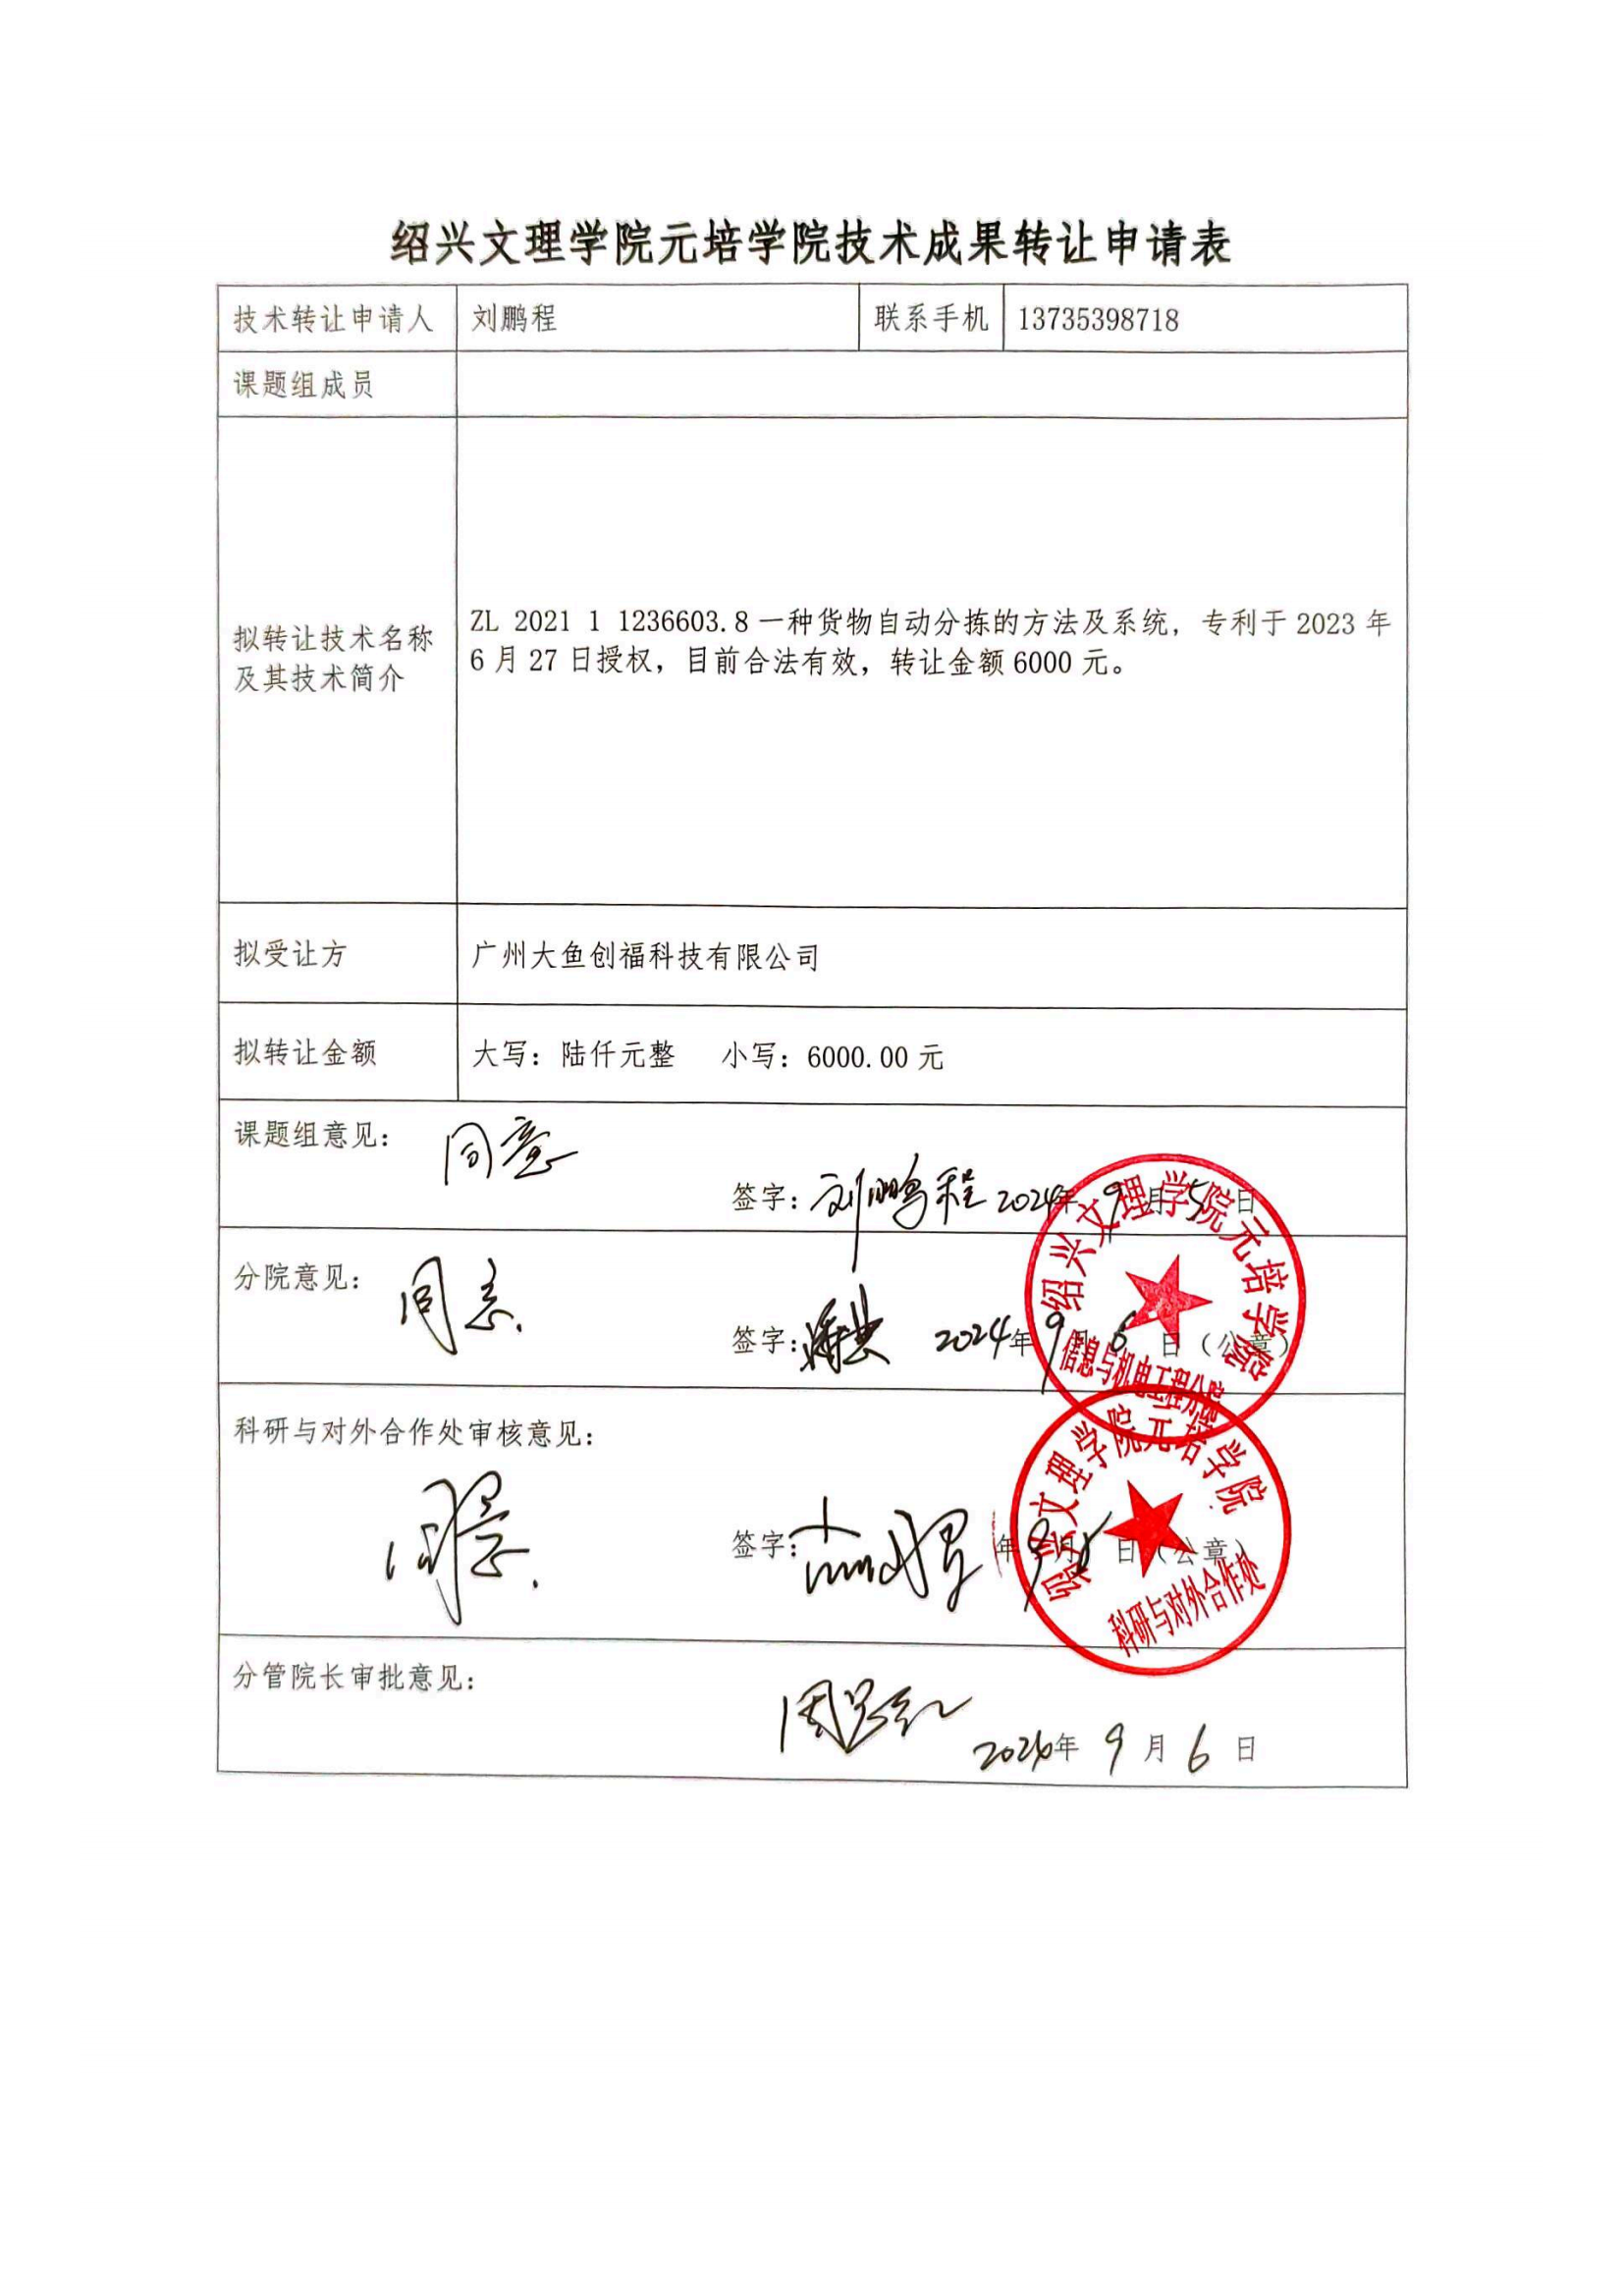 绍兴文理学院元培学院技术成果转让申请表
技术转让申请人 刘鹏程 联系手机 13735398718
课题组成员
拟转让技术名称
及其技术简介
ZL 2021 1 1236603.8 一种货物自动分拣的方法及系统，专利于 2023 年
6 月 27 日授权，目前合法有效，转让金额 6000 元。
拟受让方 广州大鱼创福科技有限公司
拟转让金额 大写：陆仟元整 小写：6000.00 元
课题组意见： 同意
签字：刘鹏程 2024年 9月5日
分院意见： 同意
签字： 2024年 9月 6 日（公章）
绍兴文理学院元培学院
信息与机电工程分院
科研与对外合作处审核意见：
同意
签字： 年 9月 日（公章）
绍兴文理学院元培学院
科研与对外合作处
分管院长审批意见：
2024年 9 月 6 日